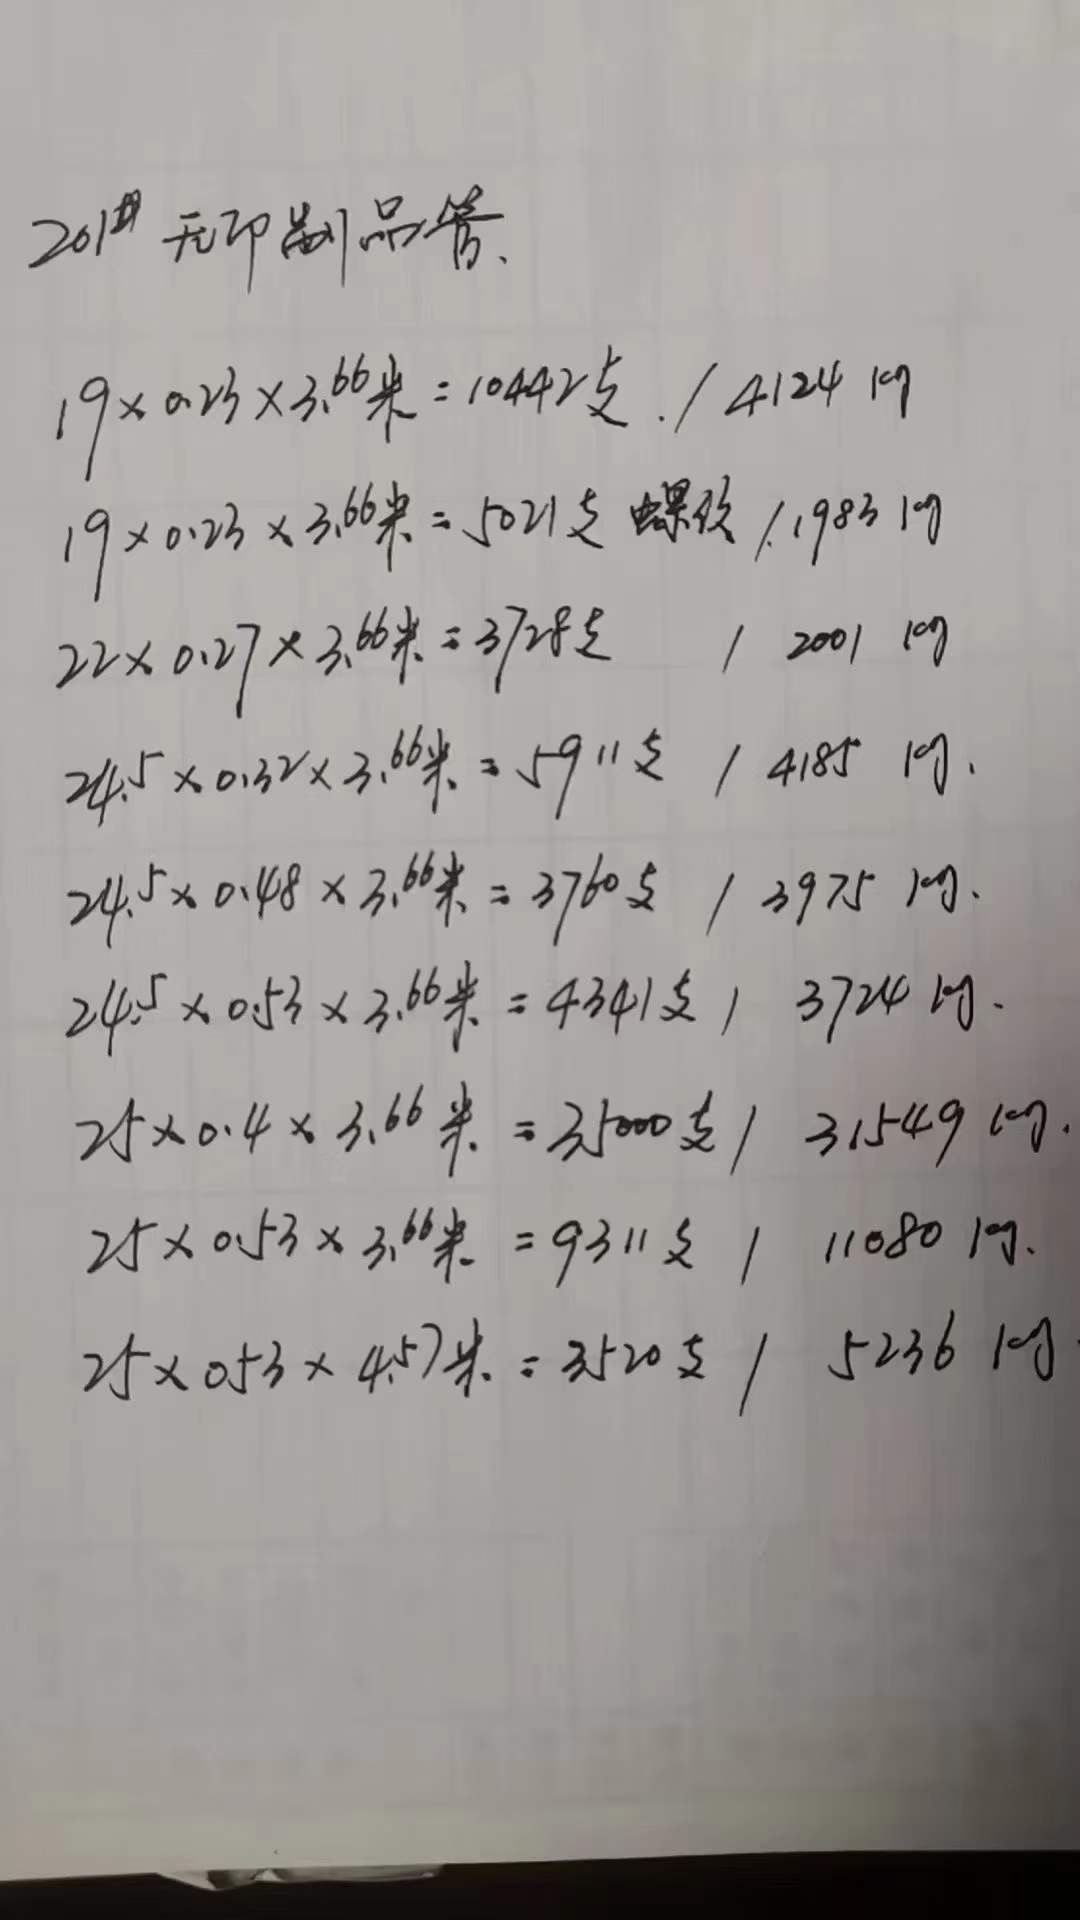 201# 无印制品管.
19×0.23×3.66米=10442支./4124kg
19×0.23×3.66米=5021支 螺纹/.1983kg
22×0.27×3.66米=3728支 / 2001 kg
24.5×0.32×3.66米=5911支 / 4185 kg.
24.5×0.48×3.66米=3760支 / 3975 kg.
24.5×0.53×3.66米=4341支/ 3724kg.
25×0.4×3.66米=35000支/ 31549kg.
25×0.53×3.66米=9311支/ 11080kg.
25×053×4.57米=3520支/ 5236kg